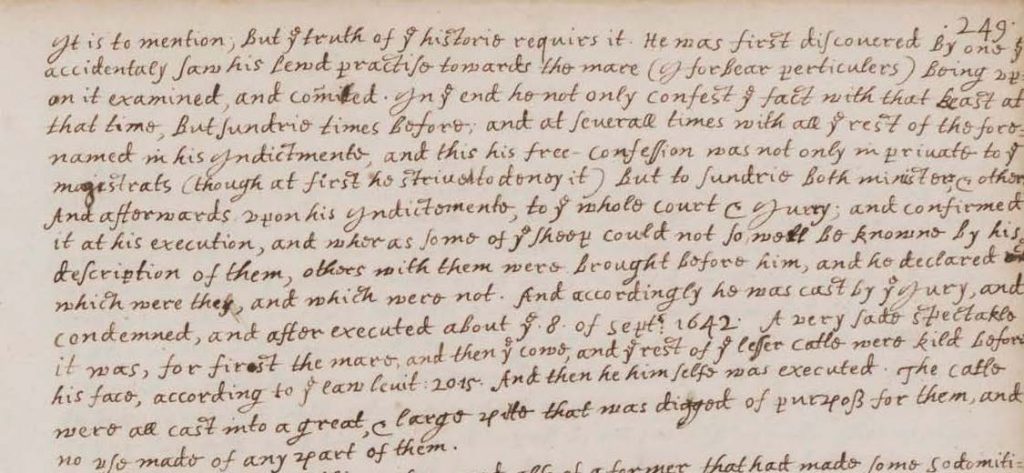 249.
It is to mention; But yͤ truth of yͤ historie requirs it. He was first discovered by one yͭ
accidentaly saw his lewd practise towards the mare (I forbear perticulers) Being vp-
on it examined, and com̅ited. In yͤ end he not only confest yͤ fact with that beast at
that time, But sundrie times before; and at severall times with all yͤ rest of the fore-
named in his Indictmente, and this his free-confession was not only in private to yͤ
magistrats (though at first he strived to deney it) But to sundrie both ministers, & others
And afterwards, vpon his Indictemente, to yͤ whole court & Jurry; and confirmed
it at his execution, and wheras some of yͤ sheep could not so well be knowne by his
description of them, others with them were brought before him, and he declared
which were they, and which were not. And accordingly he was cast by yͤ Jury, and
condemned, and after executed about yͤ .8. of Septʳ 1642. A very sade spectakle
it was, for first the mare, and then yͤ cowe, and yͤ rest of yͤ lesser catle were kild before
his face, according to yͤ law levit: 20.15. And then he him selfe was executed. The catle
were all cast into a great, & large pite that was digged of purposs for them, and
no vse made of any part of them.
of a former that had made some sodomiti-